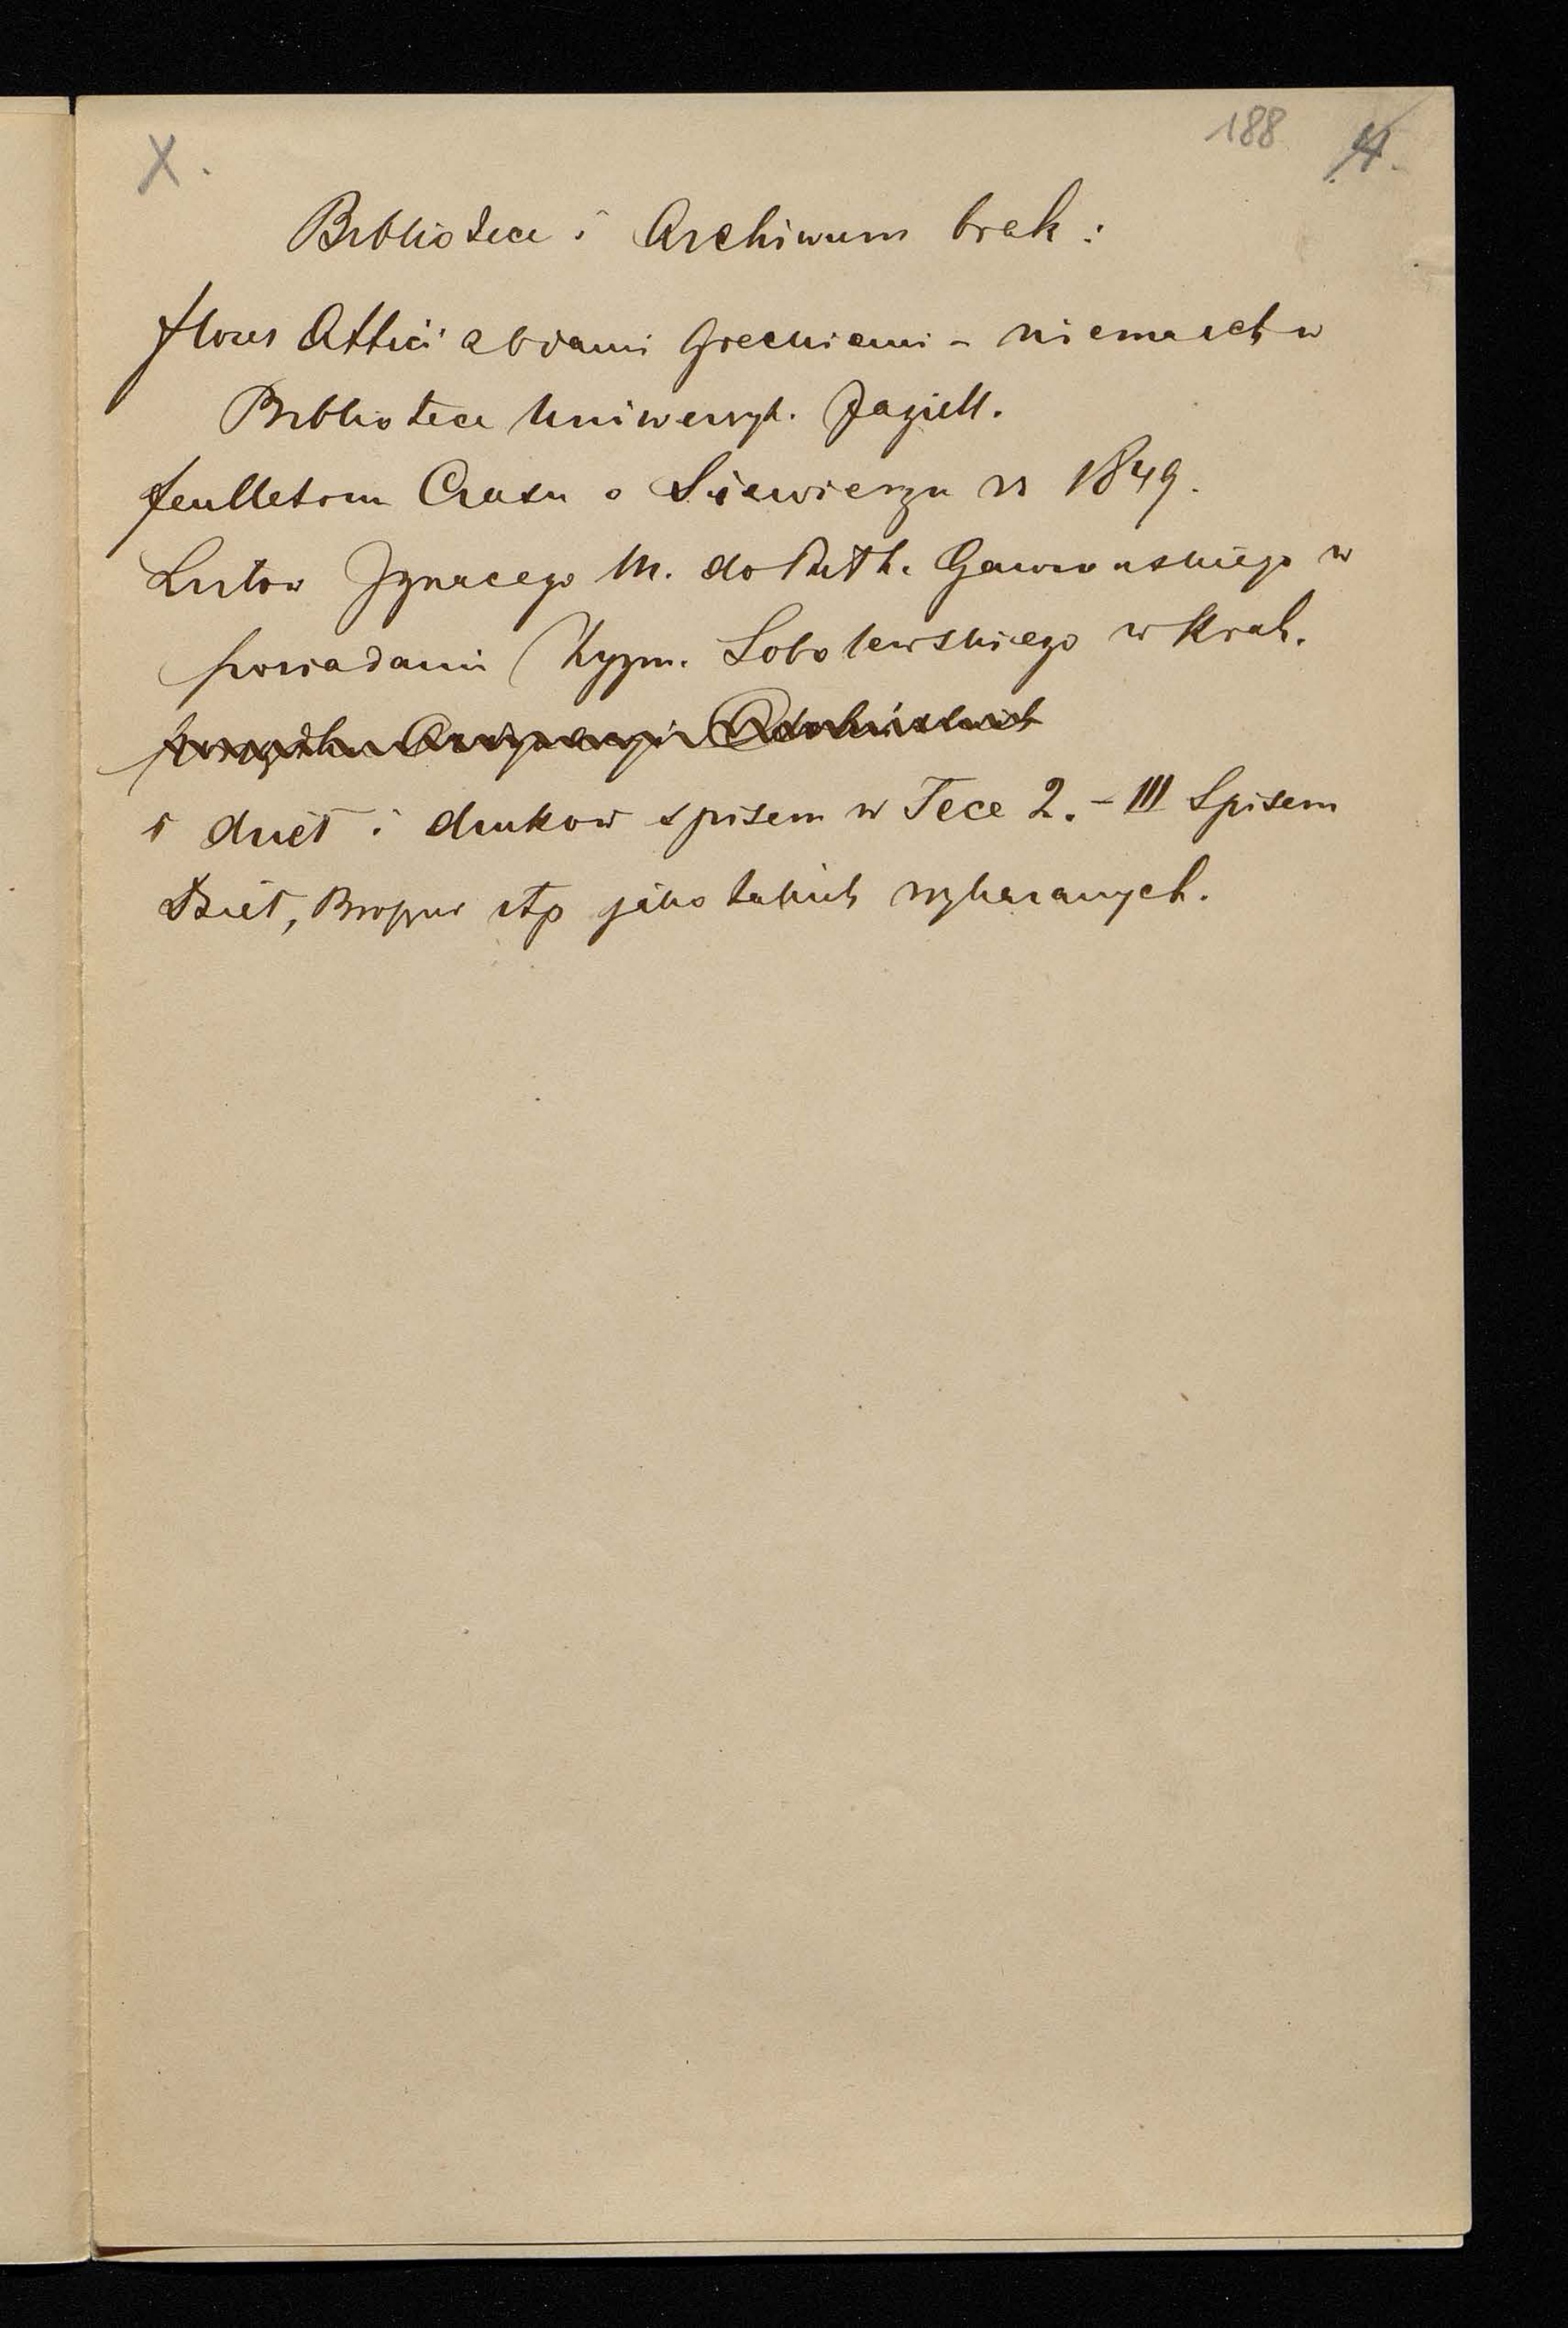 X.
188 4.
Bibliotece i Archiwum brak:
flores Attici zdiami Greckiemi - niema ich w
Bibliotece Uniwersyt. Jagiell.
feulletonu Czasu o Siewierzu z r 1849.
Listow Ignacego M. do Gawronskiego w
posiadaniu Zygm. Sobolewskiego w Krak.
dzieł i drukow spisem w Tece 2. - III Spisem
Dzieł, Broszur itp jako takich wykazanych.